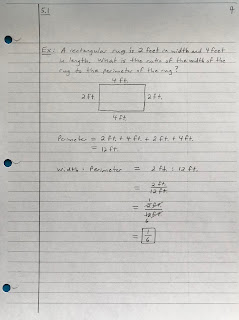 5.1 4
Ex: A rectangular rug is 2 feet in width and 4 feet
in length. What is the ratio of the width of the
rug to the perimeter of the rug?
4 ft.
2 ft. 2 ft.
4 ft.
Perimeter = 2 ft. + 4 ft. + 2 ft. + 4 ft.
= 12 ft.
Width : Perimeter = 2 ft. : 12 ft.
= 2 ft. / 12 ft.
1
= 2 ft. / 12 ft.
6
= 1/6